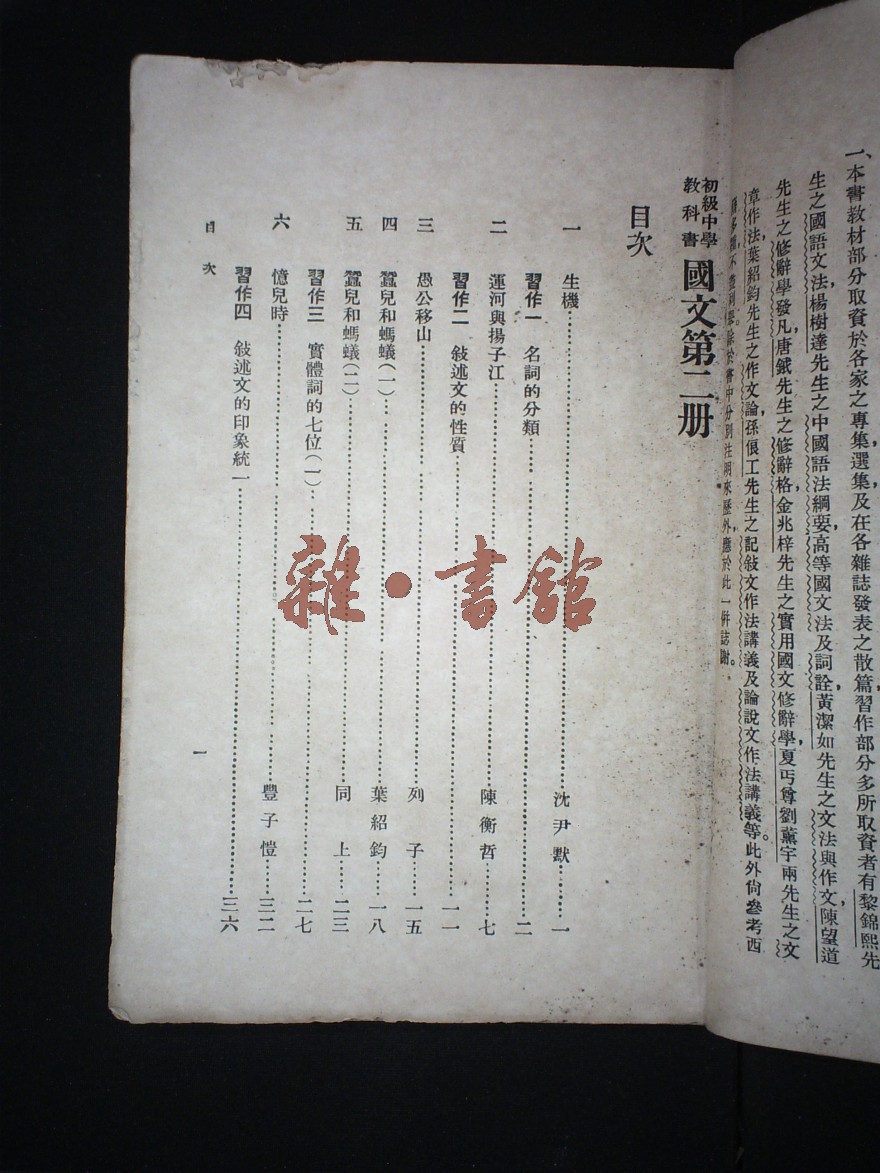 一、本書教材部分取資於各家之專集，選集及在各雜誌發表之散篇，習作部分多所取資者有黎錦熙先
生之國語文法，楊樹達先生之中國語法綱要，高等國文法及詞詮，黃潔如先生之文法與作文，陳望道
先生之修辭學發凡，唐鉞先生之修辭格，金兆梓先生之實用國文修辭學，夏丏尊劉薰宇兩先生之文
章作法，葉紹鈞先生之作文論，孫俍工先生之記敍文作法講義及論說文作法講義等。此外尙參考西
於書中分別注明來歷外，應於此一倂誌謝。
初級中學教科書 國文第二册
目次
一 生機 沈尹默 一
習作一 名詞的分類 二
二 運河與揚子江 陳衡哲 七
習作二 敍述文的性質 一一
三 愚公移山 列子 一五
四 蠶兒和螞蟻（一） 葉紹鈞 一八
五 蠶兒和螞蟻（二） 同上 二三
習作三 實體詞的七位（一） 二七
六 憶兒時 豐子愷 三二
習作四 敍述文的印象統一 三六
目次 一
雜·書館